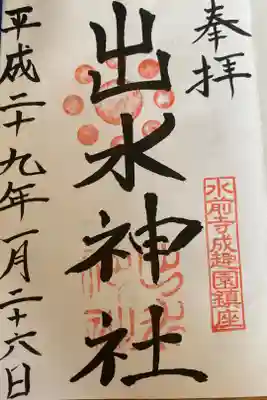 奉拝
水前寺成趣園鎮座
出水神社
平成二十九年一月二十六日